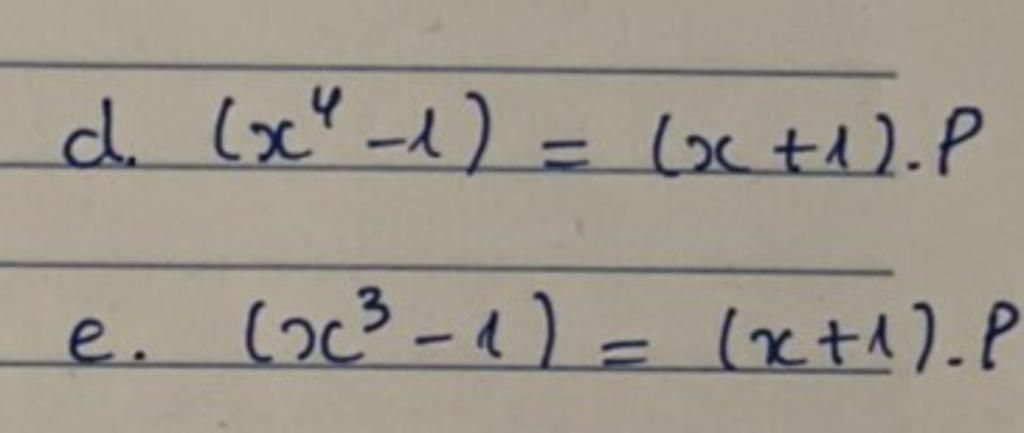 d. (x⁴ - 1) = (x + 1). P
e. (x³ - 1) = (x + 1). P